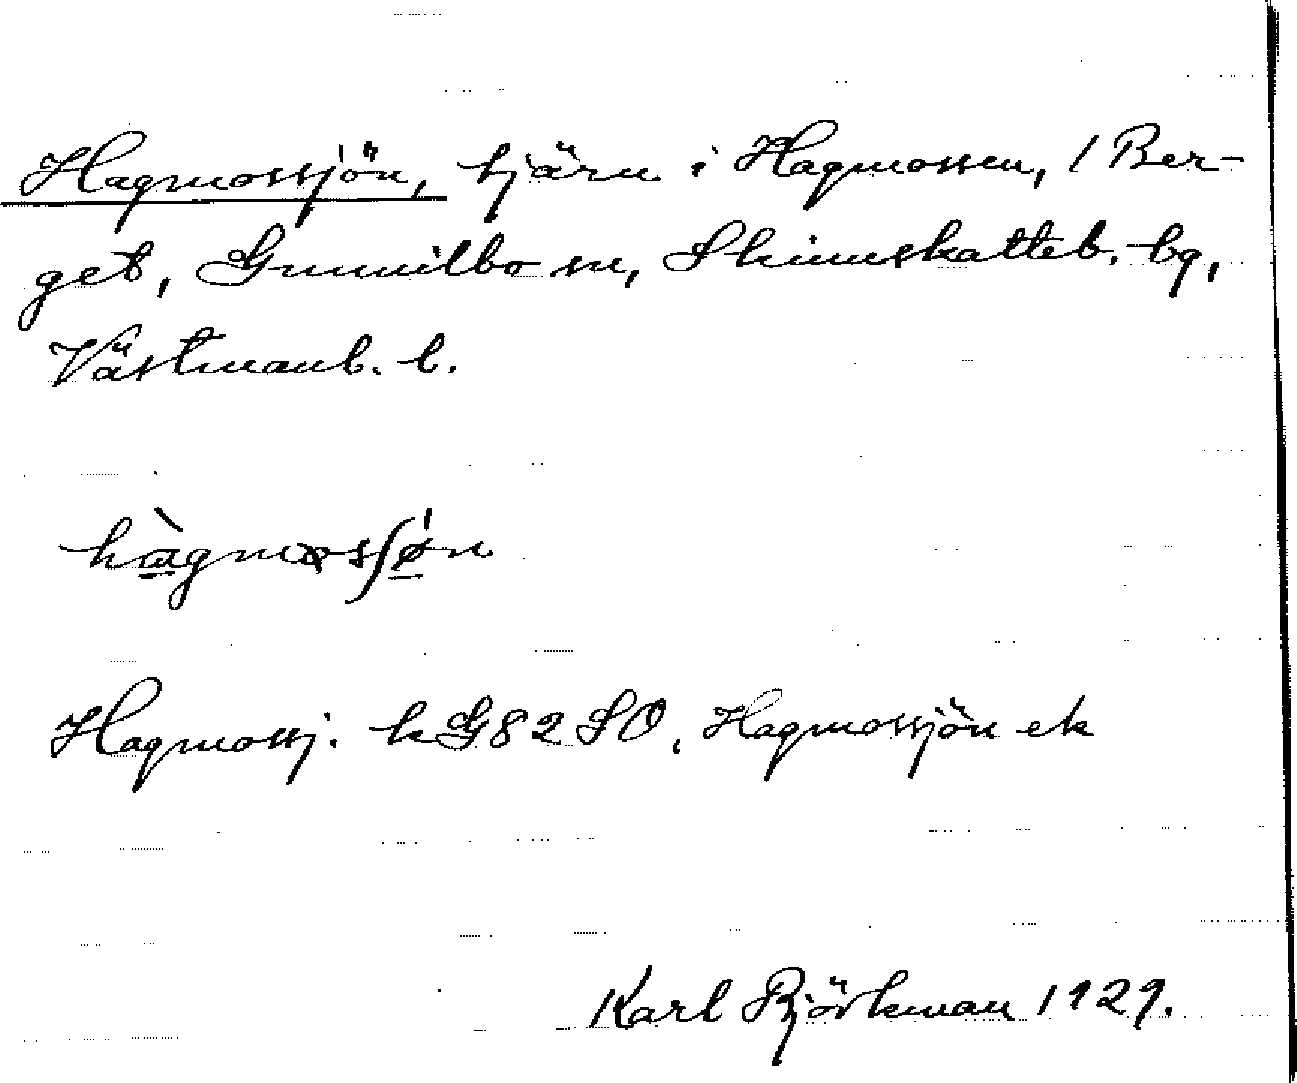 Hagmossjön, tjärn i Hagmossen, 1 Ber-
get, Gunnilbo sn, Skinnskatteb. bg,
Västmanl. l.
hàgmossʃǿn
Hagmossj. kG82SO, Hagmossjön ek
Karl Björkman 1929.